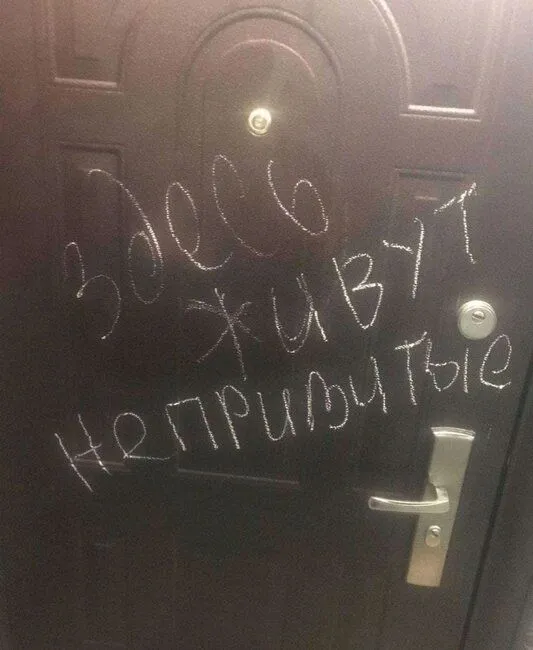 Здесь
живут
непривитые